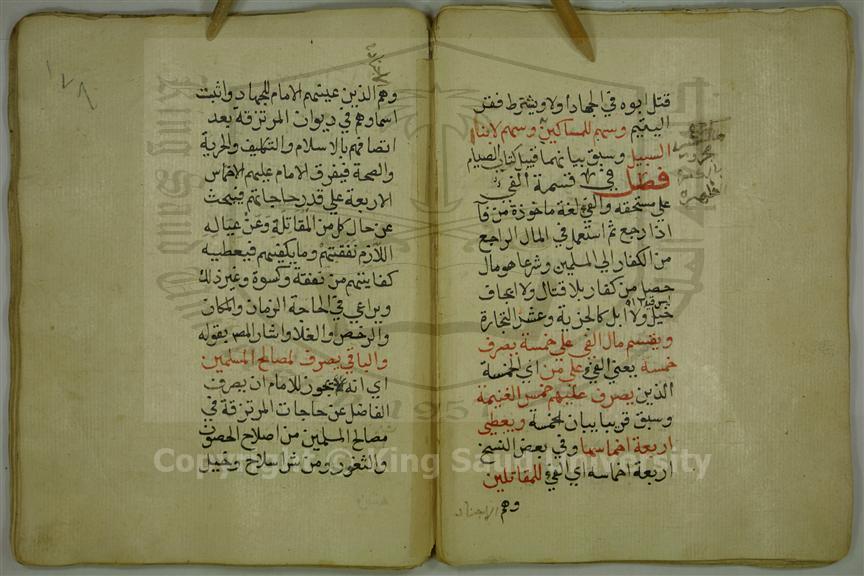 قتل ابوه في الجهاد أولا ويشترط فقر
اليتيم وسهم للمساكين وسهم لابناء
السبيل وسبق بيانهما قبيل كتاب الصيام
فصل في قسمة الفي
على مستحقه والفي لغة ماخوذة من فآ
اذا رجع ثم استعمل في المال الراجع
من الكفار الى المسلمين وشرعا هو مال
حصل من كفار بلا قتال ولا ايجاف
خيل ولا ابل كالجزية وعشر التجارة
ويقسم مال الفي على خمسة يصرف
خمسه يعني الفي على من اي الخمسة
الذين يصرف عليهم خمس الغنيمة
وسبق قريبا بيان الخمسة ويعطى
اربعة اخماسها وفي بعض النسخ
اربعة اخماسه اي الفي للمقاتلين
وهم الاجناد
وهم الذين عينهم الامام للجهاد واثبت
اسماوهم في ديوان المرتزقة بعد
اتصافهم بالاسلام والتكليف والحرية
والصحة فيفرق الامام عليهم الاخماس
الاربعة على قدر حاجاتهم فيبحث
عن حال كل من المقاتلة وعن عياله
اللازم نفقتهم وما يكفيهم فيعطيه
كفايتهم من نفقة وكسوة وغير ذلك
ويراعي في الحاجة الزمان والمكان
والرخص والغلا واشار المص بقوله
والباقي يصرف لمصالح المسلمين
اي انه يجوز للامام ان يصرف
الفاضل عن حاجات المرتزقة في
مصالح المسلمين من اصلاح الحصون
والثغور ومن شرا سلاح وخيل
١٢٨
Copyright © King Saud University
King Saud
1957